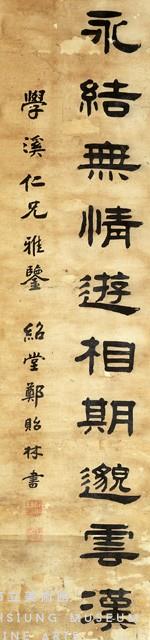 永結無情遊相期邈雲漢
學溪仁兄雅鑒 紹堂鄭貽林書
市立美術館
HSIUNG MUSEUM
INE ARTS